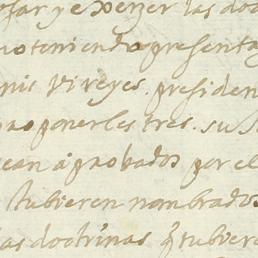 las doc
no teniendo presenta
mis Virreyes. presiden
proponerles tres. su
sean aprobados por el
tubieren nombrados
as doctrinas q tubiere